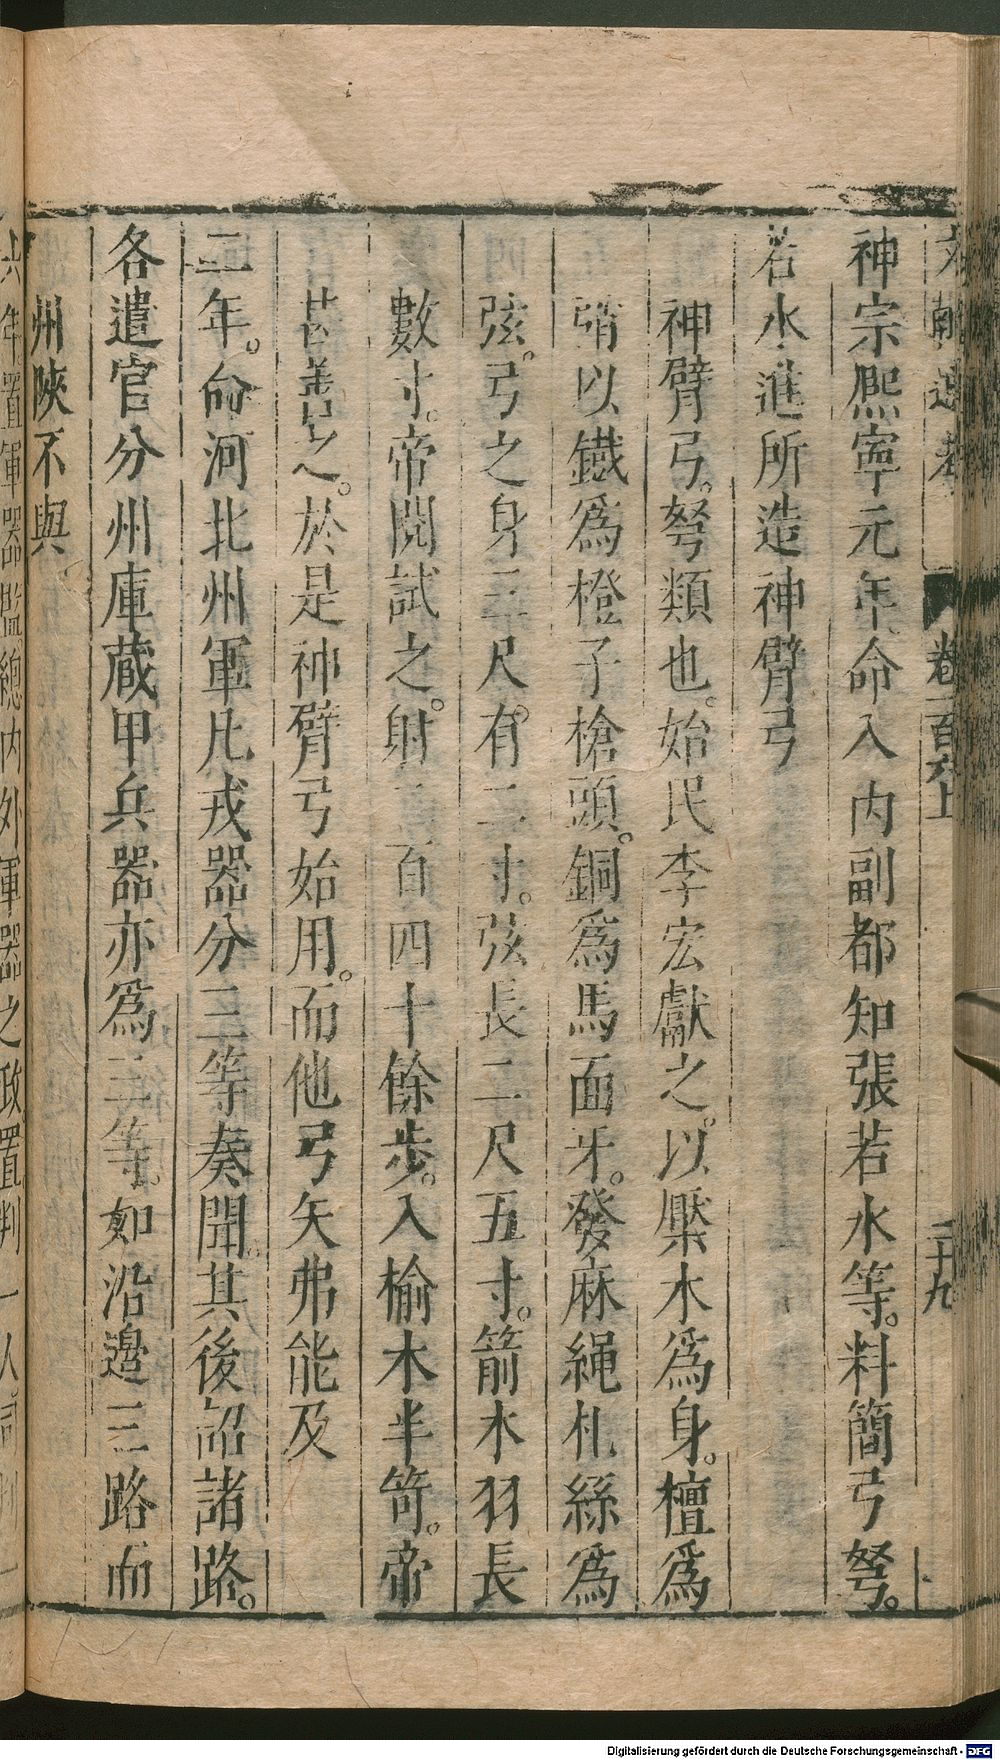 文獻通考 卷一百六十上 二十九
神宗熙寧元年命入內副都知張若水等。料簡弓弩。
若水進所造神臂弓
神臂弓。弩類也。始民李宏獻之。以檿木為身。檀為
弰以鐵為橙子槍頭。銅為馬面牙。發麻繩札絲為
弦。弓之身三尺。有二寸。弦長二尺五寸。箭木羽長
數寸。帝閱試之。射二百四十餘步。入榆木半笴。帝
甚善之。於是神臂弓始用。而他弓矢弗能及
二年。命河北州軍凡戎器分三等奏聞。其後詔諸路。
各遣官分州庫藏甲兵器亦為三等。如沿邊三路而
州陝不與
六年置軍器監。總內外軍器之政置判一人。同判一
Digitalisierung gefördert durch die Deutsche Forschungsgemeinschaft - DFG